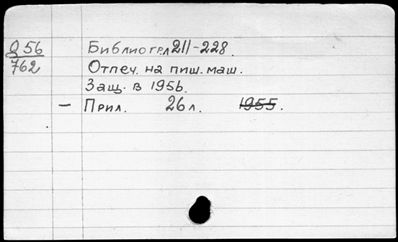 Д 56 Библиогр. 211-228.
762 Отпеч. на пиш. маш.
Защ. в 1956.
– Прил. 26 л. 1955.